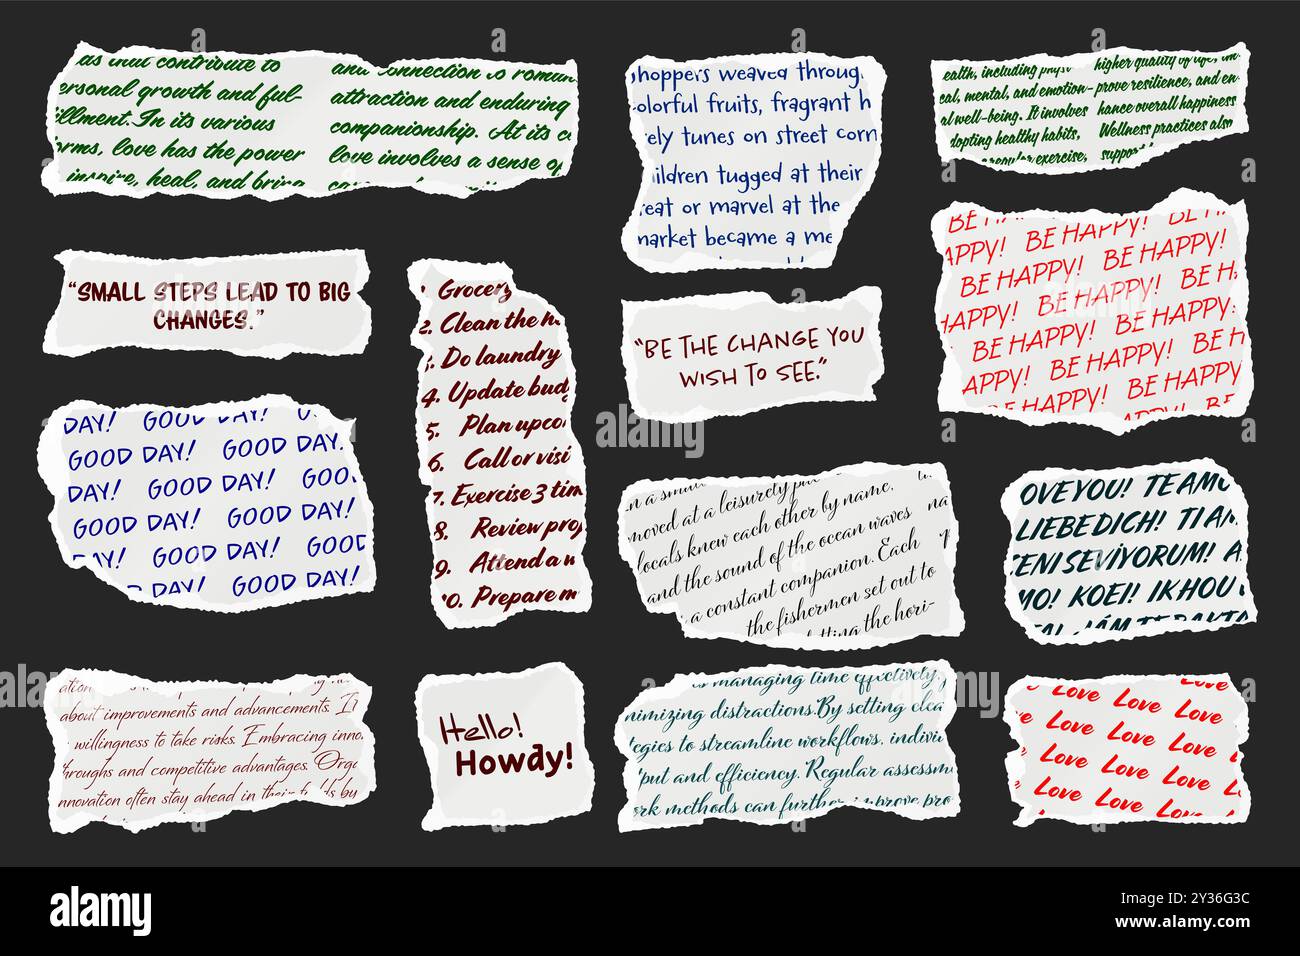 as that contribute to
ersonal growth and ful-
illment. In its various
orms, love has the power
inspire, heal, and bring
and connection to roman
attraction and enduring
companionship. At its c
love involves a sense of
hoppers weaved throug
olorful fruits, fragrant h
ely tunes on street corn
ildren tugged at their
reat or marvel at the
market became a me
ealth, including phys
cal, mental, and emotion-
al well-being. It involves
dopting healthy habits,
regular exercise,
higher quality of
prove resilience, and en-
hance overall happiness
Wellness practices also
support
“SMALL STEPS LEAD TO BIG
CHANGES.”
Grocery
2. Clean the h
3. Do laundry
4. Update budg
5. Plan upco
6. Call or visi
7. Exercise 3 tim
8. Review proj
9. Attend a w
10. Prepare m
“BE THE CHANGE YOU
WISH TO SEE.”
BE HAPPY! BE HA
APPY! BE HAPPY! BE HAPPY!
BE HAPPY! BE HAPPY!
HAPPY! BE HAPPY! BE HA
BE HAPPY! BE HAPPY!
APPY! BE HAPPY! BE H
BE HAPPY! BE HAPPY
HAPPY! BE
DAY! GOOD DAY!
GOOD DAY! GOOD DAY!
DAY! GOOD DAY! GOO
GOOD DAY! GOOD DAY!
AY! GOOD DAY! GOOD
DAY! GOOD DAY!
n a small
moved at a leisurely pa
locals knew each other by name,
and the sound of the ocean waves na
a constant companion. Each
the fishermen set out to
the hori-
OVE YOU! TE AMO
LIEBE DICH! TI AM
ENI SEVİYORUM! A
MO! KOEI! IK HOU
about improvements and advancements. It
willingness to take risks. Embracing inno
hroughs and competitive advantages. Orga
nnovation often stay ahead in their fields by
Hello!
Howdy!
managing time effectively,
nimizing distractions. By setting clea
tegies to streamline workflows, indivi
put and efficiency. Regular assessm
rk methods can further improve pro
Love Love Love
Love Love Love
Love Love Love
Love Love Love L
Love Love Love
alamy
Image ID: 2Y36G3C
www.alamy.com